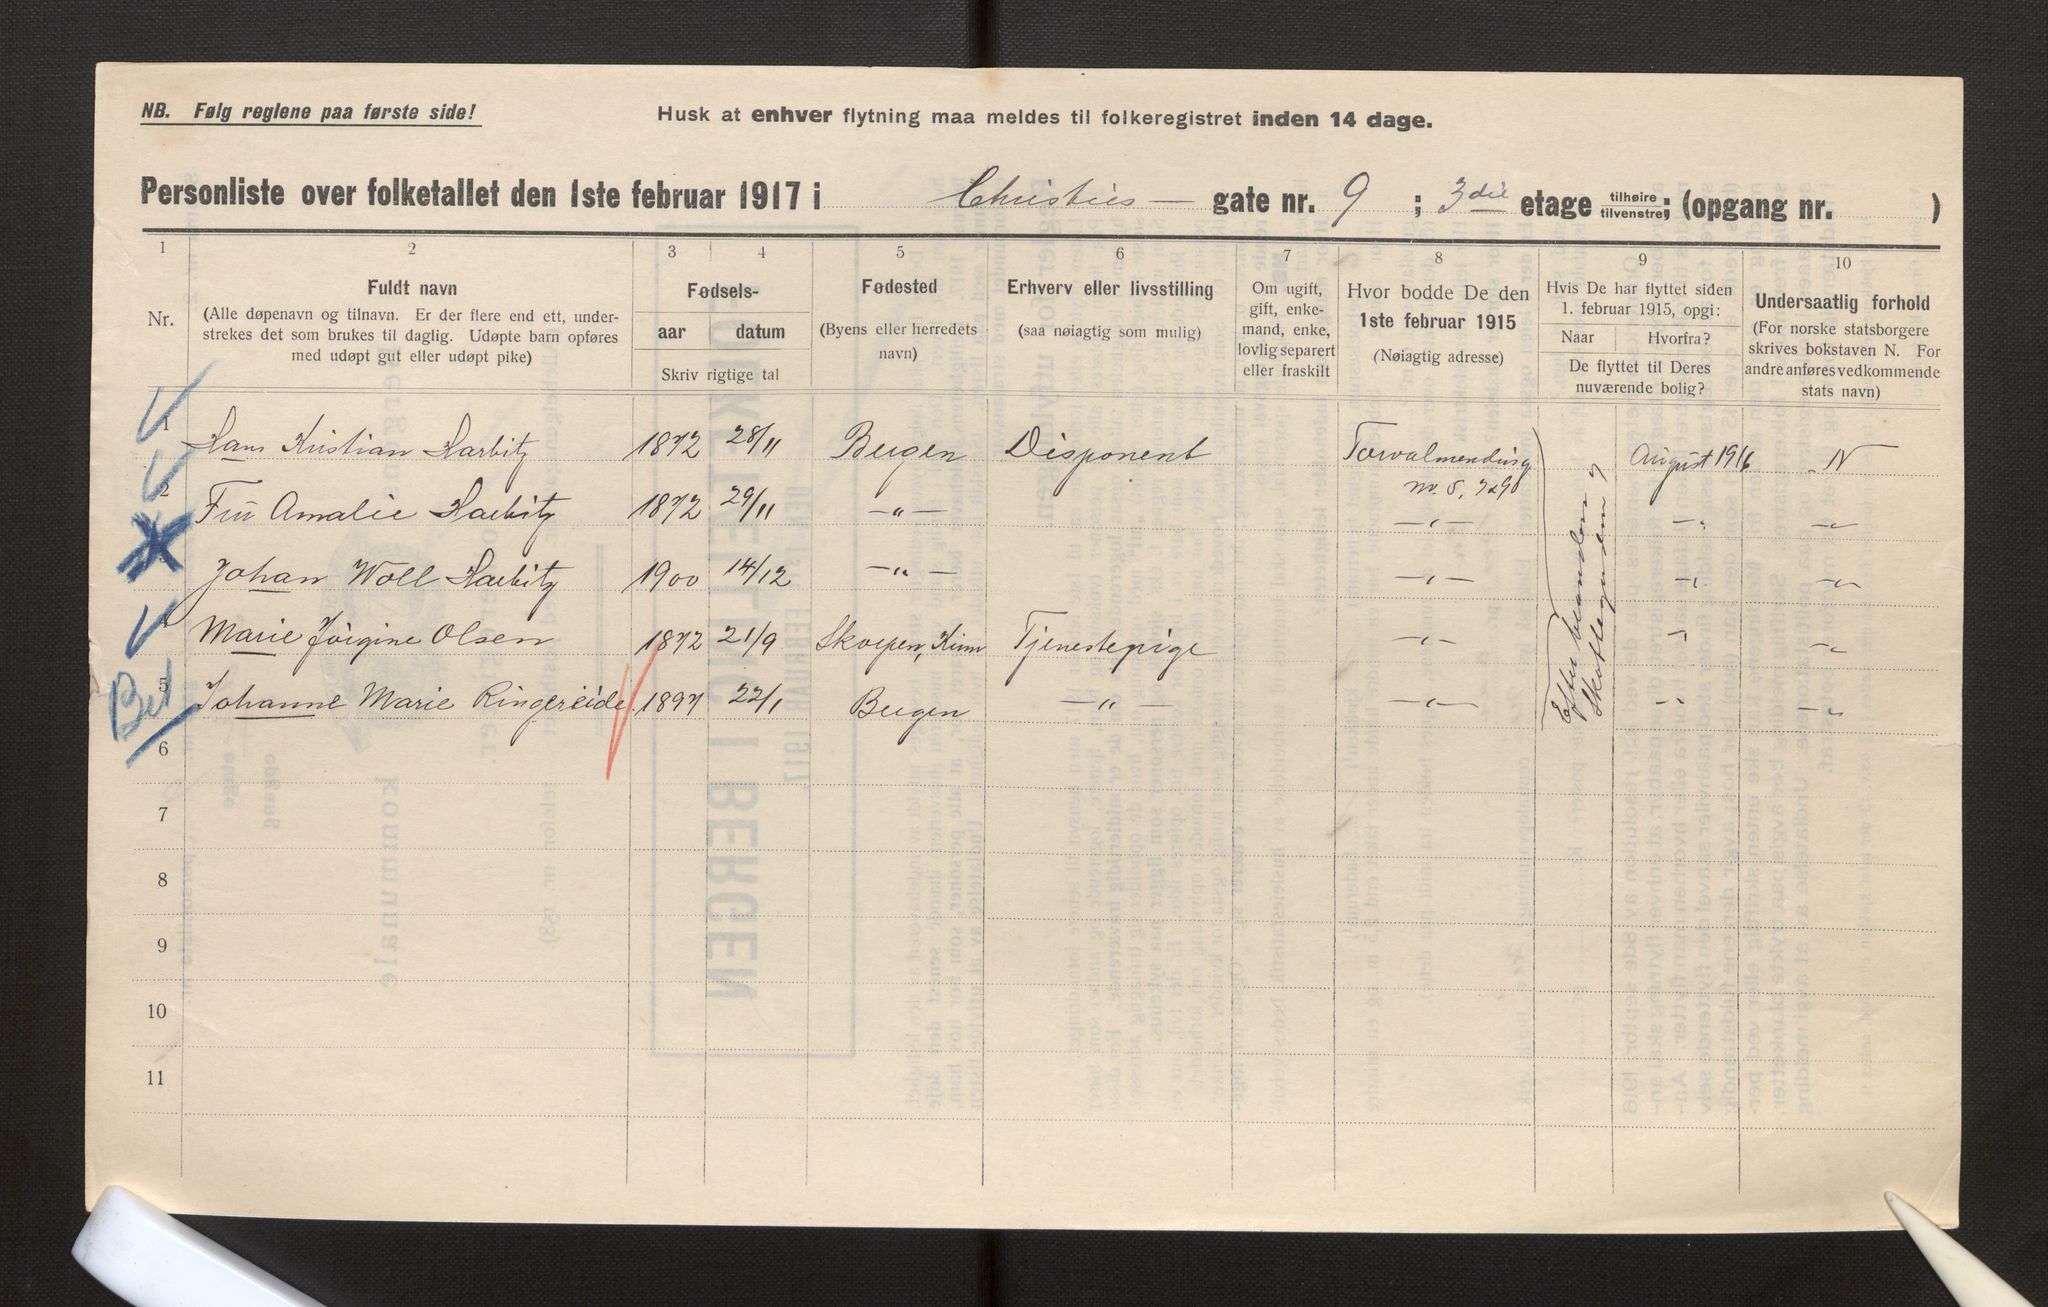 NB. Følg reglene paa første side!
Husk at enhver flytning maa meldes til folkeregistret inden 14 dage.
Personliste over folketallet den 1ste februar 1917 i Christies — gate nr. 9 ; 3die etage tilhøire tilvenstre; (opgang nr. )
1 2 3 4 5 6 7 8 9 10
Nr.
Fuldt navn
(Alle døpenavn og tilnavn. Er der flere end ett, under-
strekes det som brukes til daglig. Udøpte barn opføres
med udøpt gut eller udøpt pike)
Fødsels-
aar datum
Skriv rigtige tal
Fødested
(Byens eller herredets
navn)
Erhverv eller livsstilling
(saa nøiagtig som mulig)
Om ugift,
gift, enke-
mand, enke,
lovlig separert
eller fraskilt
Hvor bodde De den
1ste februar 1915
(Nøiagtig adresse)
Hvis De har flyttet siden
1. februar 1915, opgi:
Naar Hvorfra?
De flyttet til Deres
nuværende bolig?
Undersaatlig forhold
(For norske statsborgere
skrives bokstaven N. For
andre anføres vedkommende
stats navn)
1 Hans Kristian Harbitz 1872 28/11 Bergen Disponent Torvalmending August 1916 N
nr. 5, 7 & 9
2 Fru Amalie Harbitz 1872 29/11 —„— —„— —„— —„—
Johan Woll Harbitz 1900 14/12 —„— —„— —„— —„—
4 Marie Jörgine Olsen 1872 21/9 Skorpen, Kinn Tjenestepige —„— —„— —„—
5 Johanne Marie Ringereide 1897 22/1 Bergen —„— —„— —„— —„—
Bet
6
7
8
9
10
11